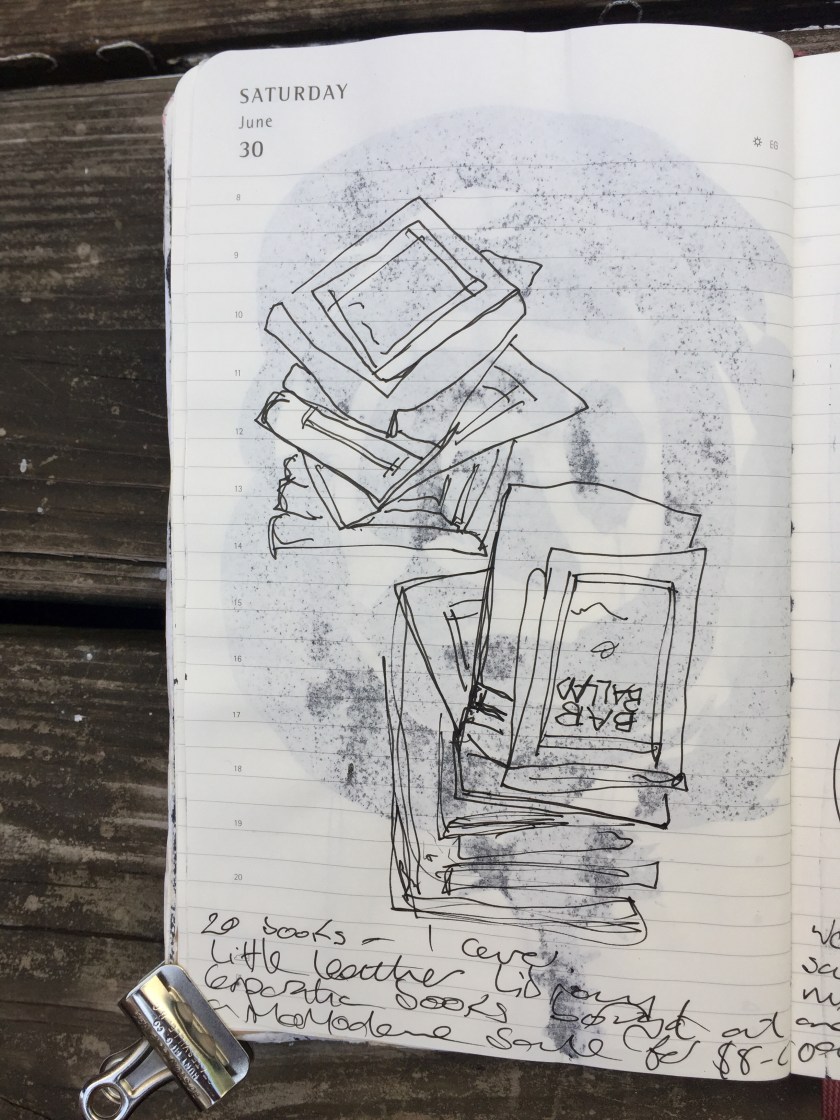 SATURDAY
June
30
EG
8
9
10
11
12
13
14
15
16
17
18
19
20
BAB
BALLAD
20 books - 1 cover
Little Leather Library
Corporation books bought at
a Sale (for $8-